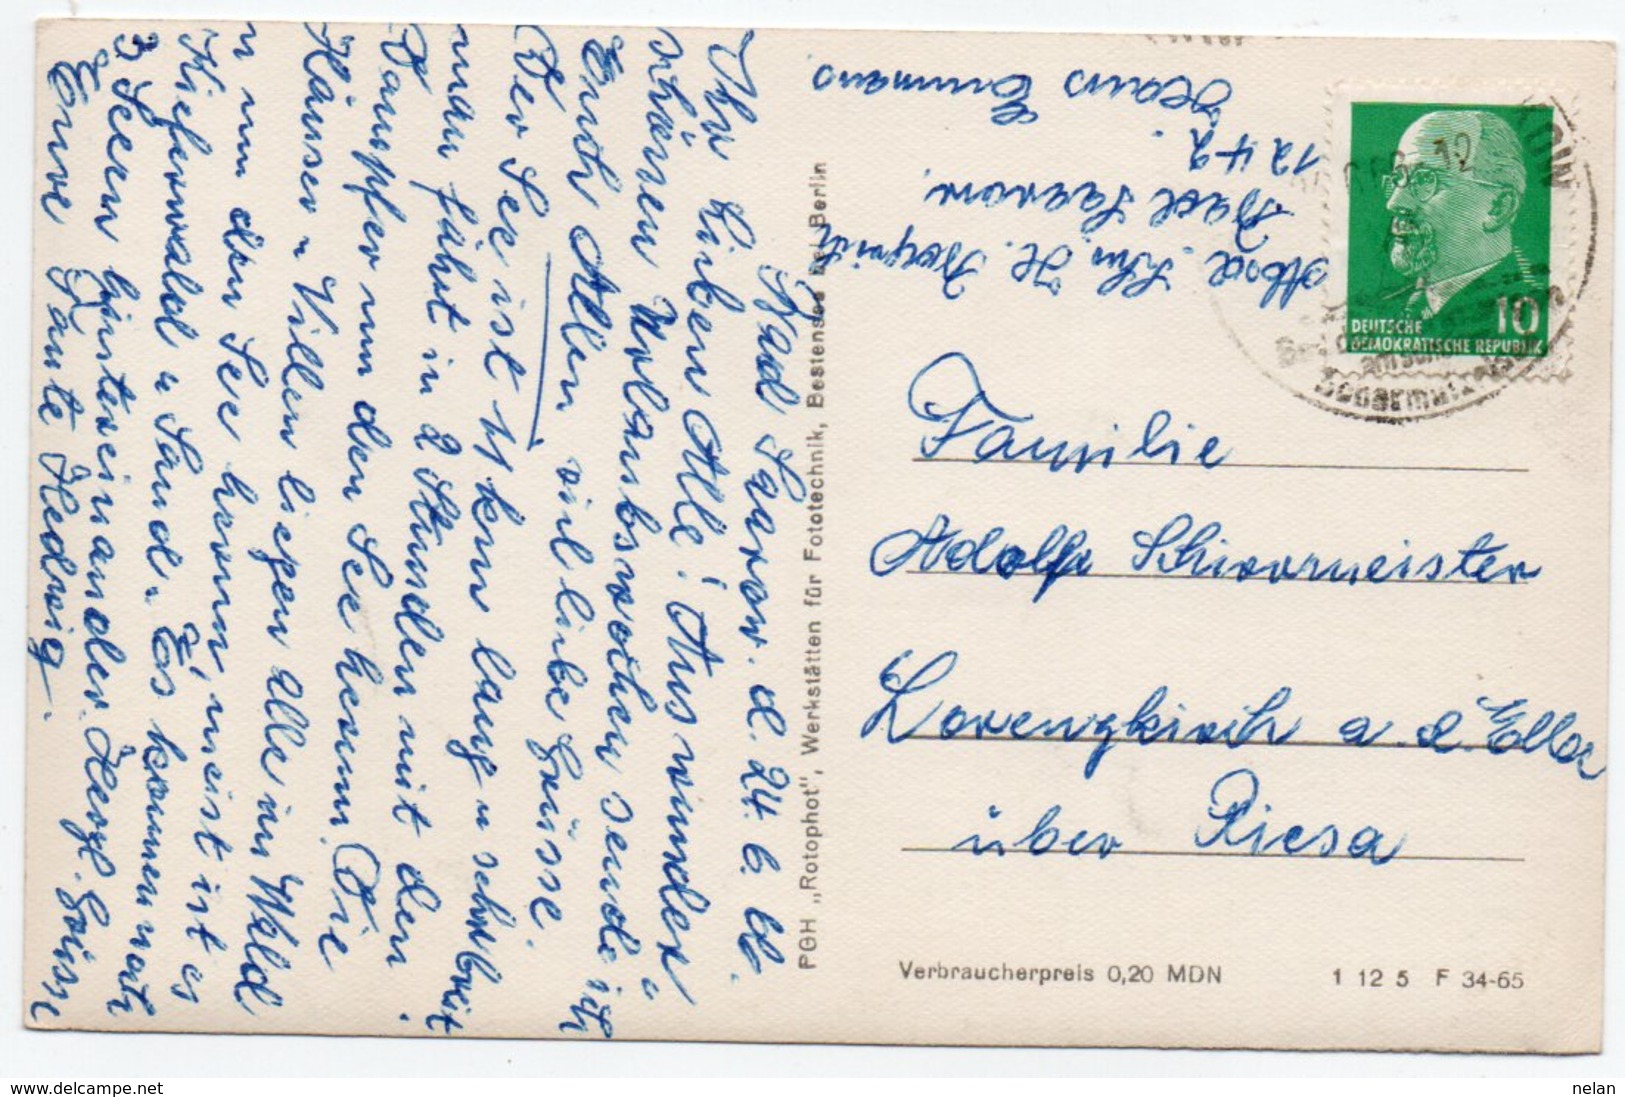 Bad Saarow. d. 24. 6. 66.
Ihr Lieben Alle! Aus wunder
schönen Urlaubswochen sende ich
Euch Allen viel liebe Grüsse.
Der See ist 11 km lang u sehr breit
man fährt in 2 Stunden mit den
Dampfer um den See herum. Die
Häuser u Villen liegen alle im Wald
u um den See herum, meist ist es
Kiefernwald u Sand. Es kommen noch
3 Seen hintereinander. Herzl. Grüsse
Eure Tante Hedwig.
PGH „Rotophot", Werkstätten für Fototechnik, Bestensee bei Berlin
Absd.
Bad Saarow.
1242
Haus Emmaus
DEUTSCHE
DEMOKRATISCHE REPUBLIK
10
Familie
Adolf Schirrmeister
Lorenzkirch a. d. Elbe
über Riesa
Verbraucherpreis 0,20 MDN
1 12 5 F 34-65
www.delcampe.net
nelan